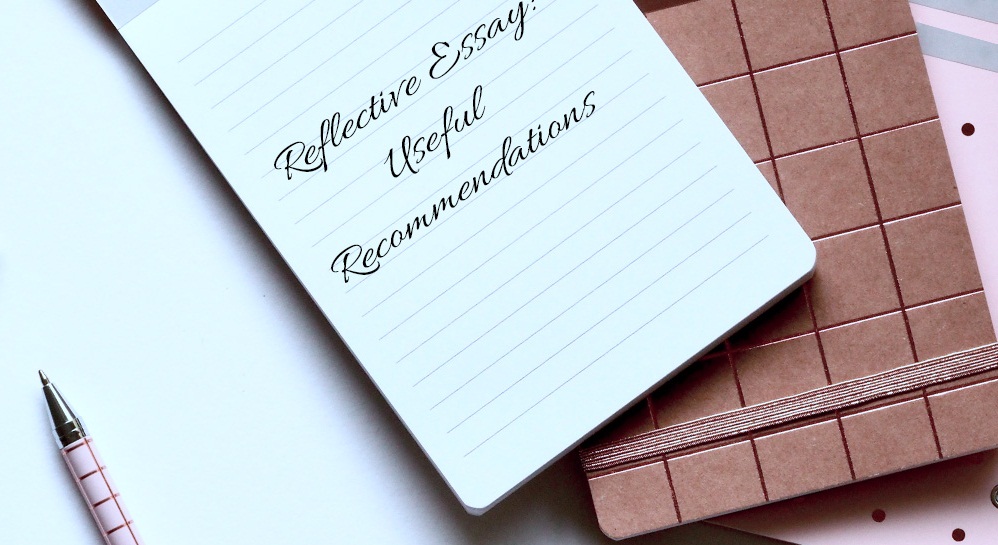 Reflective Essay:
Useful
Recommendations